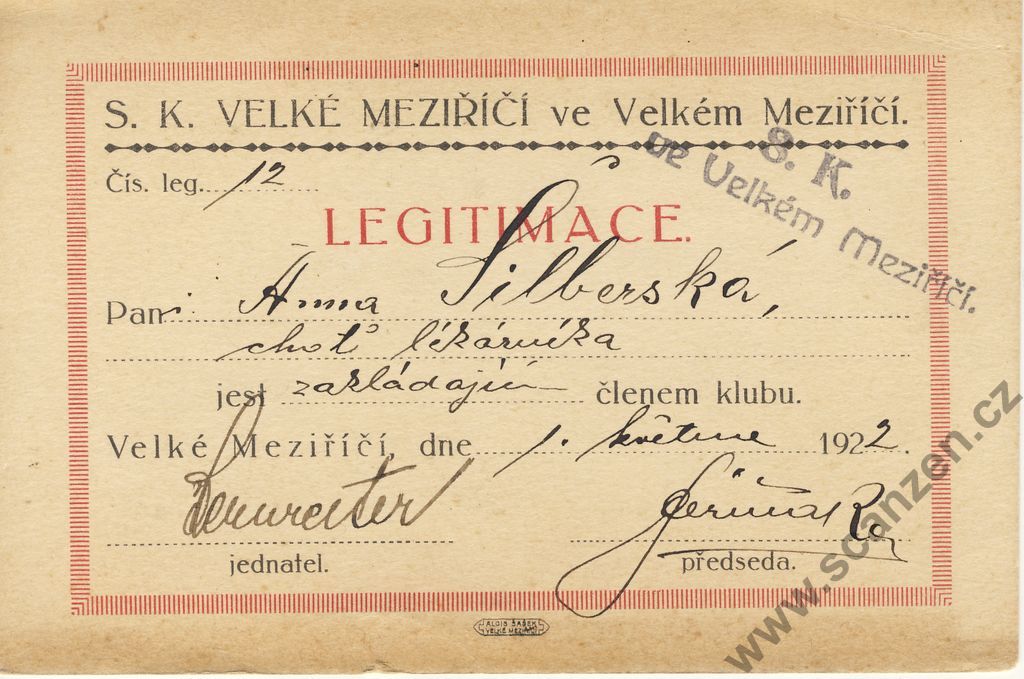 S. K. VELKÉ MEZIŘÍČÍ ve Velkém Meziříčí.
S. K.
ve Velkém Meziříčí.
Čís. leg. 12
LEGITIMACE.
Paní Anna Silberská,
choť lékárníka
jest zakládajícím členem klubu.
Velké Meziříčí, dne 1. května 1922.
jednatel.
předseda.
ALOIS ŠAŠEK
VELKÉ MEZIŘÍČÍ
www.scanzen.cz